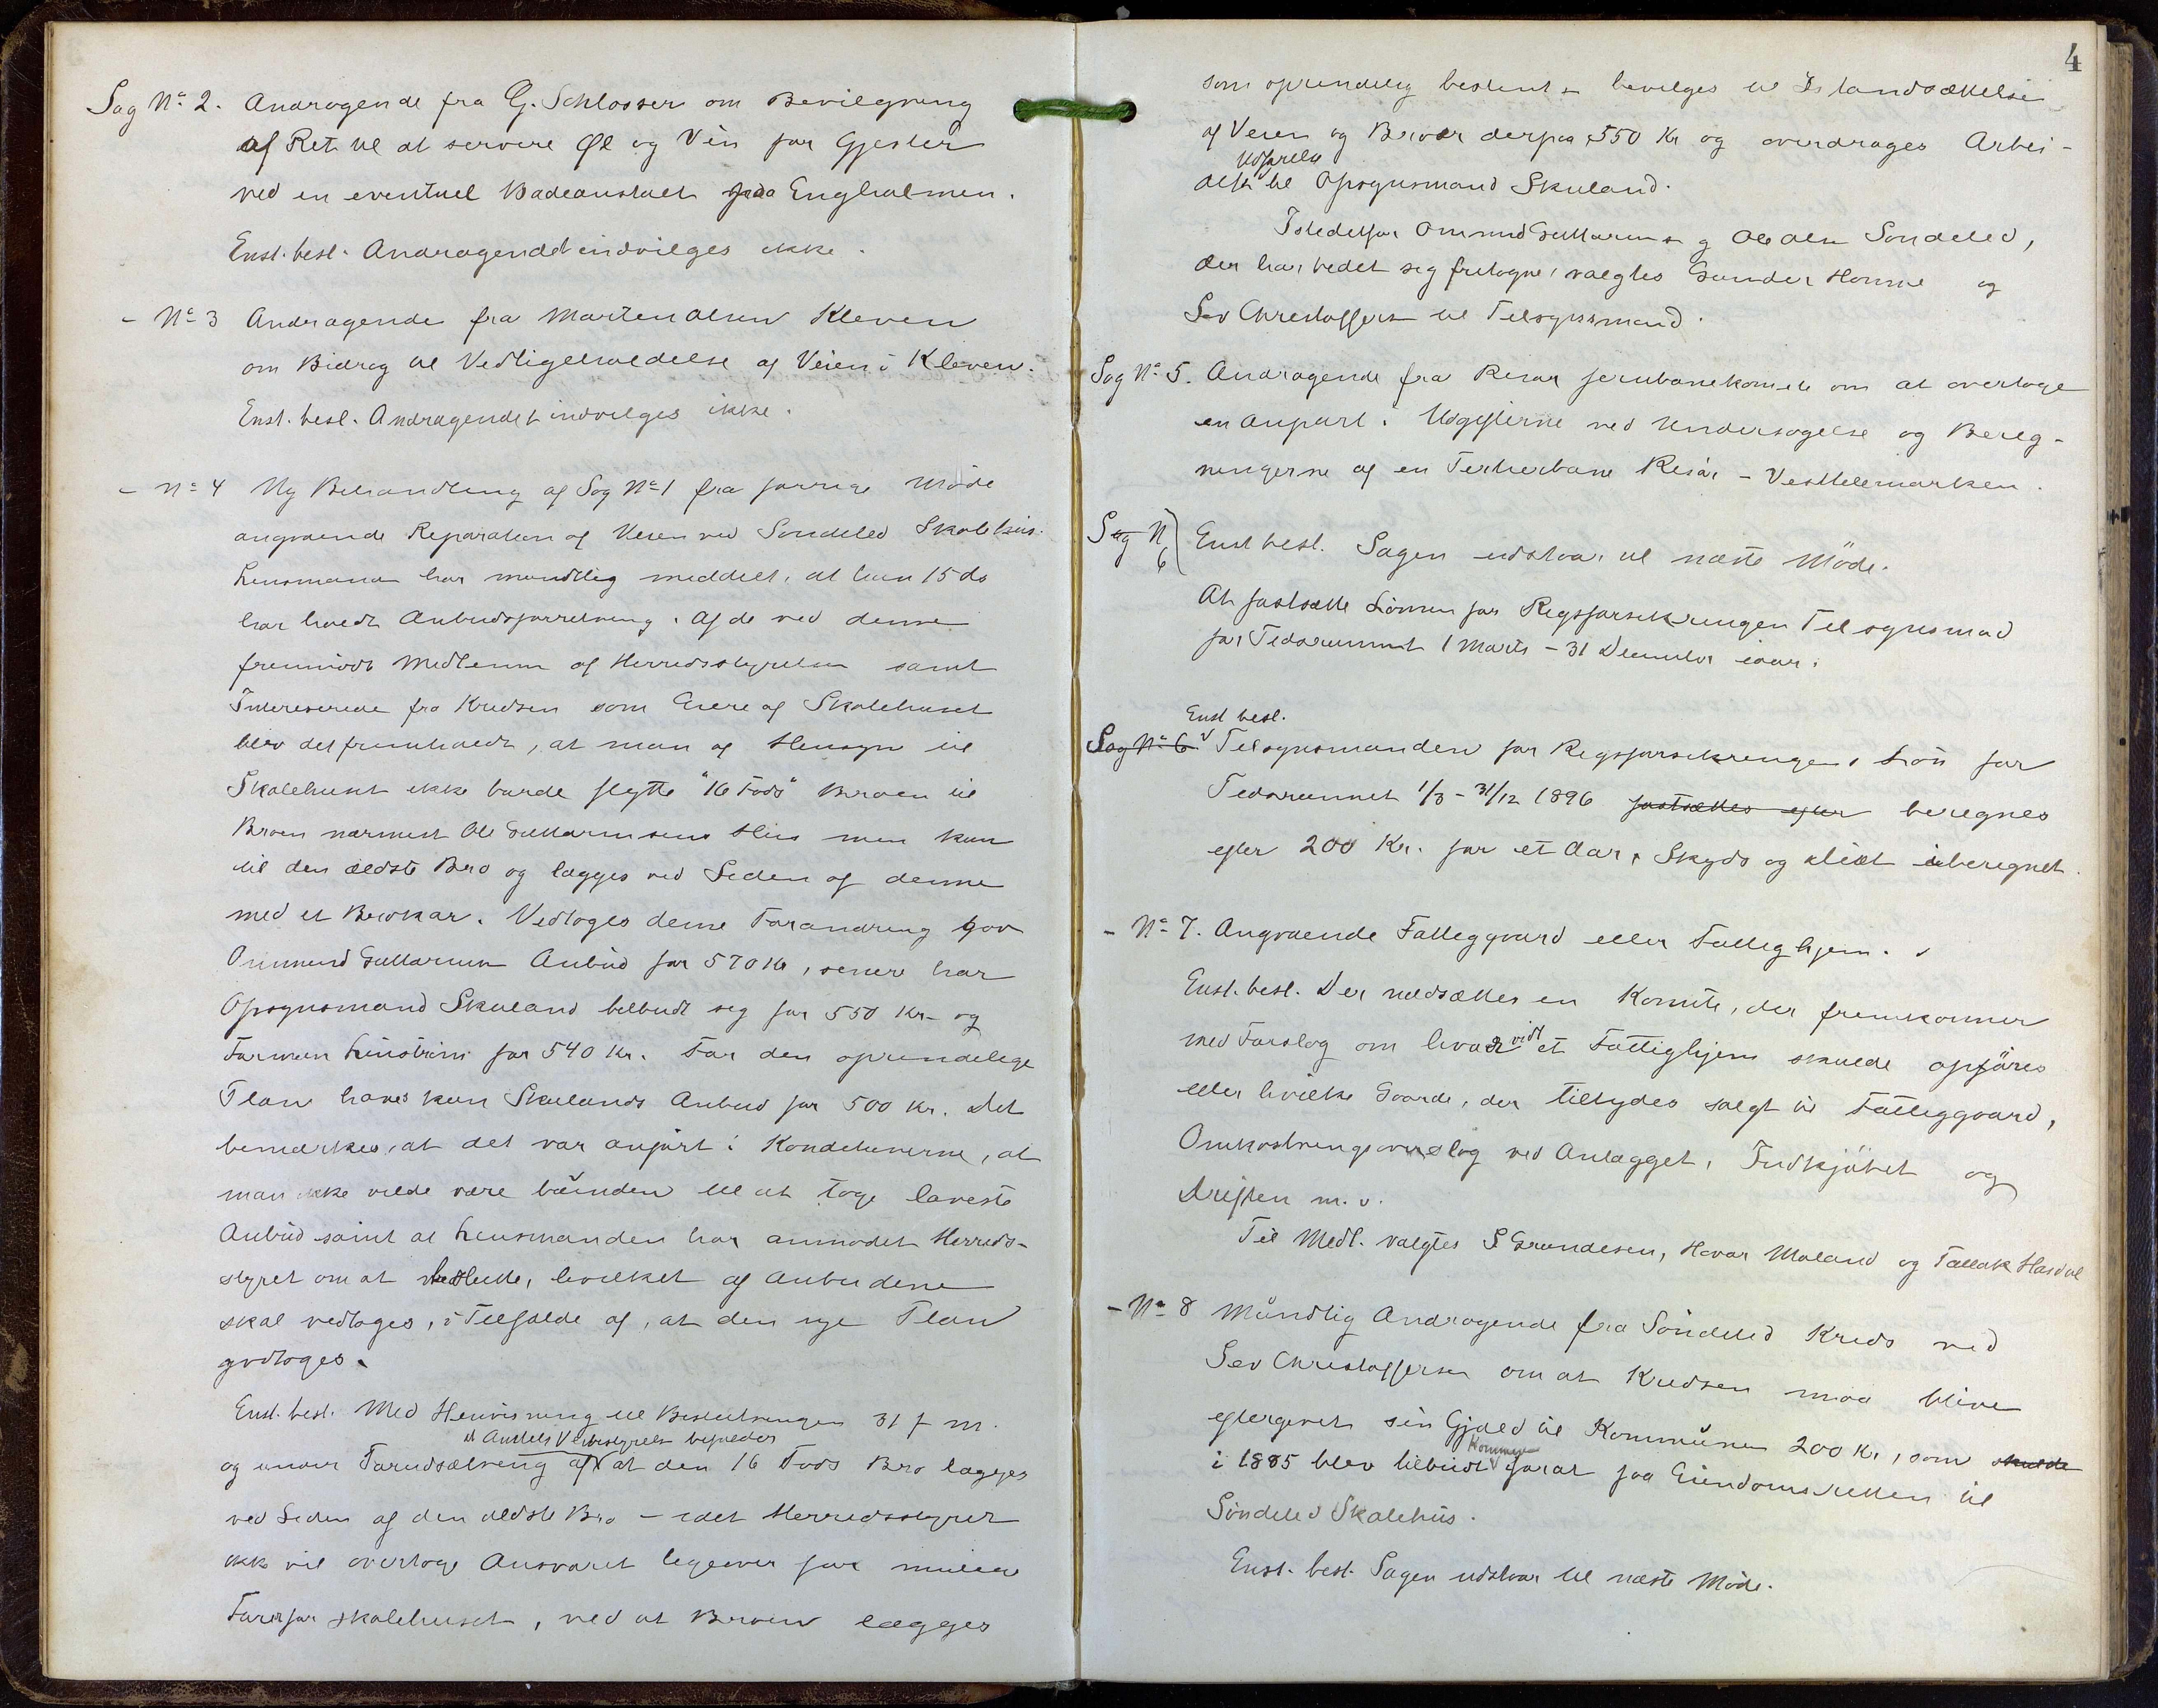 Sag No 2. Andragende fra G. Schlosser om Bevilgning
af Ret til at servere Øl og Vin for Gjester
ved en eventuel Badeanstalt paa Engholmen.
Enst. besl. Andragendet indvilges ikke.
- No 3 Andragende fra Marten Olsen Kleven
om Bidrag til Vedligeholdelse af Veien i Kleven.
Enst. besl. Andragendet indvilges ikke.
- No 4 Ny Behandling af Sag No 1 fra forrige Møde
angaaende Reparation af Veien ved Søndeled Skolehus.
Lensmanden har mundtlig meddelt, at han 15 ds
har holdt Anbudsforretning. Af de ved denne
fremmødte Medlemmer af Herredsstyrelsen samt
Interesserede fra Kredsen som Eiere af Skolehuset
blev det fremholdt, at man af Hensyn til
Skolehuset ikke burde flytte "16 Fods" Broen til
Broen nærmest Ole Guttormsens Hus men kun
til den ældste Bro og lægges ved Siden af denne
med et Brokar. Vedtoges denne Forandring gav
Ommund Guttormsen Anbud for 570 Kr, senere har
Opsynsmand Skuland tilbudt sig for 550 Kr. og
Formann Linstrøm for 540 Kr. For den oprindelige
Plan haves kun Skulands Anbud for 500 Kr. Det
bemærkes, at det var anført i Konditionerne, at
man ikke vilde være bunden til at tage laveste
Anbud samt at Lensmanden har anmodet Herreds-
styret om at beslutte, hvilket af Anbudene
skal vedtages, i Tilfælde af, at den nye Plan
godtages.
Enst. besl. Med Henvisning til Beslutningen 31 f m.
til Amtets Veibestyrelse bifalder
og under Forudsætning af at den 16 Fods Bro lægges
ved Siden af den ældste Bro - idet Herredsstyret
ikke vil overtage Ansvaret ligeover for mulige
Farer for skolehuset, ved at Broen lægges
4
som oprindelig bestemt - bevilges til Istandsættelse
af Veien og Broer derpaa 550 Kr og overdrages Arbei-
Udførelse
dets til Opsynsmand Skuland.
Istedetfor Ommund Guttormsen og Ole Olsen Søndeled,
der har bedet sig fritagne, valgtes Gunder Homme og
Sev Christoffersen til Tilsynsmænd.
Sag No 5. Andragende fra Risør Jernbanekomite om at overtage
en anpart i Udgifterne ved Undersøgelse og Bereg-
ningerne af en Tertierbane Risør - Vesttelemarken.
Sag N 6
Enst besl. Sagen udstaar til næste Møde.
At fastsætte Lønnen for Rigsforsikringens Tilsynsmand
for Tidsrummet 1 Marts - 31 December iaar.
Enst besl.
Sag No 6. Tilsynsmanden for Rigsforsikringens Løn for
Tidsrummet 1/3 - 31/12 1896 fastsættes efter beregnes
efter 200 Kr. for et Aar, Skyds og diæt iberegnet.
- No 7. Angaaende Fattiggaard eller Fattighjem.
Enst. besl. Der nedsættes en Komite, der fremkommer
med Forslag om hvorvidt et Fattighjem skulde opføres
eller hvilke Gaarde, der tilbydes salgt til Fattiggaard,
Omkostningsoverslag ved Anlægget, Indkjøbet og
Driften m. v.
Til Medl. valgtes S Grundesen, Havor Moland og Tallak Hasdal
- No 8 Mundtlig Andragende fra Søndeled Kreds ved
Sev Christoffersen om at Kredsen maa blive
eftergivet sin Gjæld til Kommunen 200 Kr, som skulde
Kommunen
i 1885 blev tilbudt for at faa Eiendomsretten til
Søndeled Skolehus.
Enst. besl. Sagen udstaar til næste Møde.